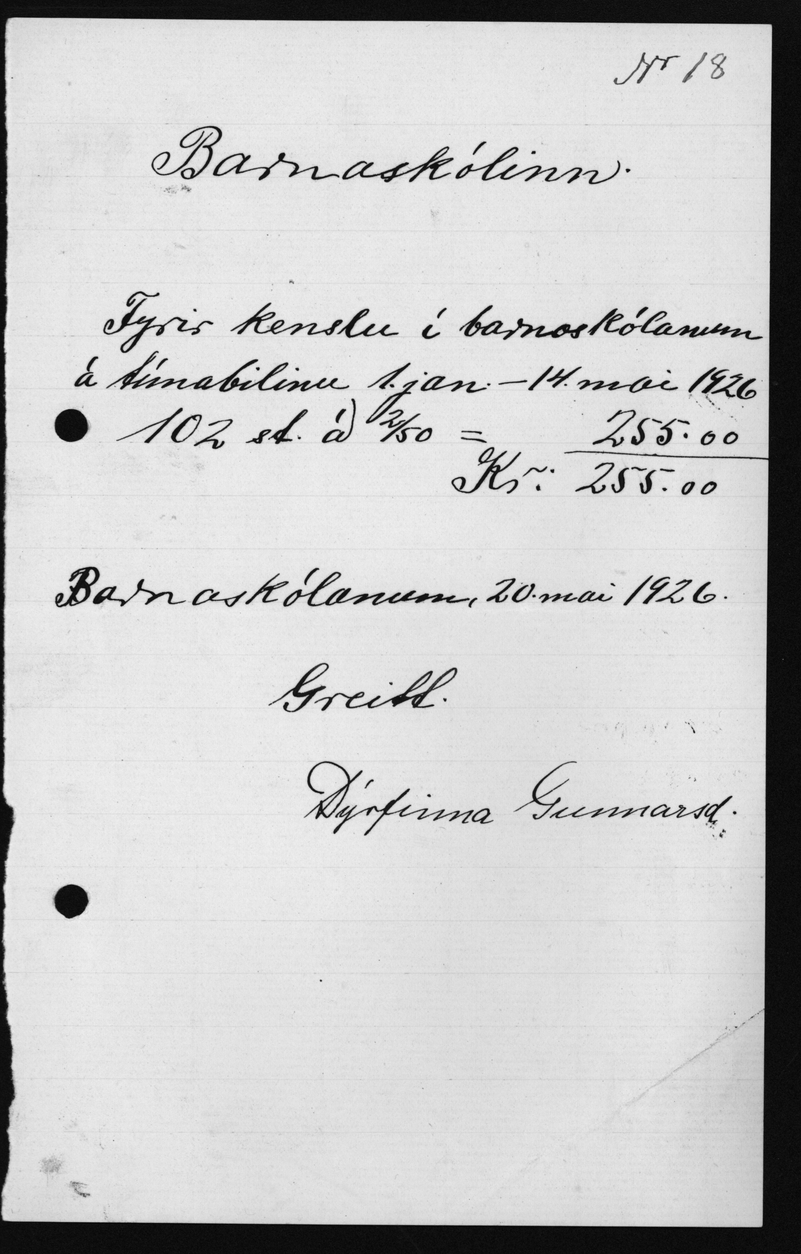 Nr 18
Barnaskólinn.
Fyrir kenslu í barnaskólanum
á tímabilinu 1. jan. – 14. mai 1926
102 st. á) 2/50 = 255.00
Kr: 255.00
Barnaskólanum, 20. mai 1926.
Greitt.
Dýrfinna Gunnarsd.